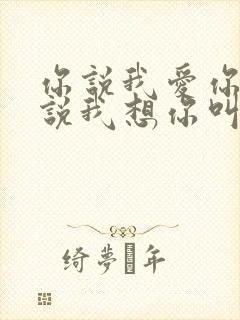 你說我愛你
說我想你叫
綺夢年